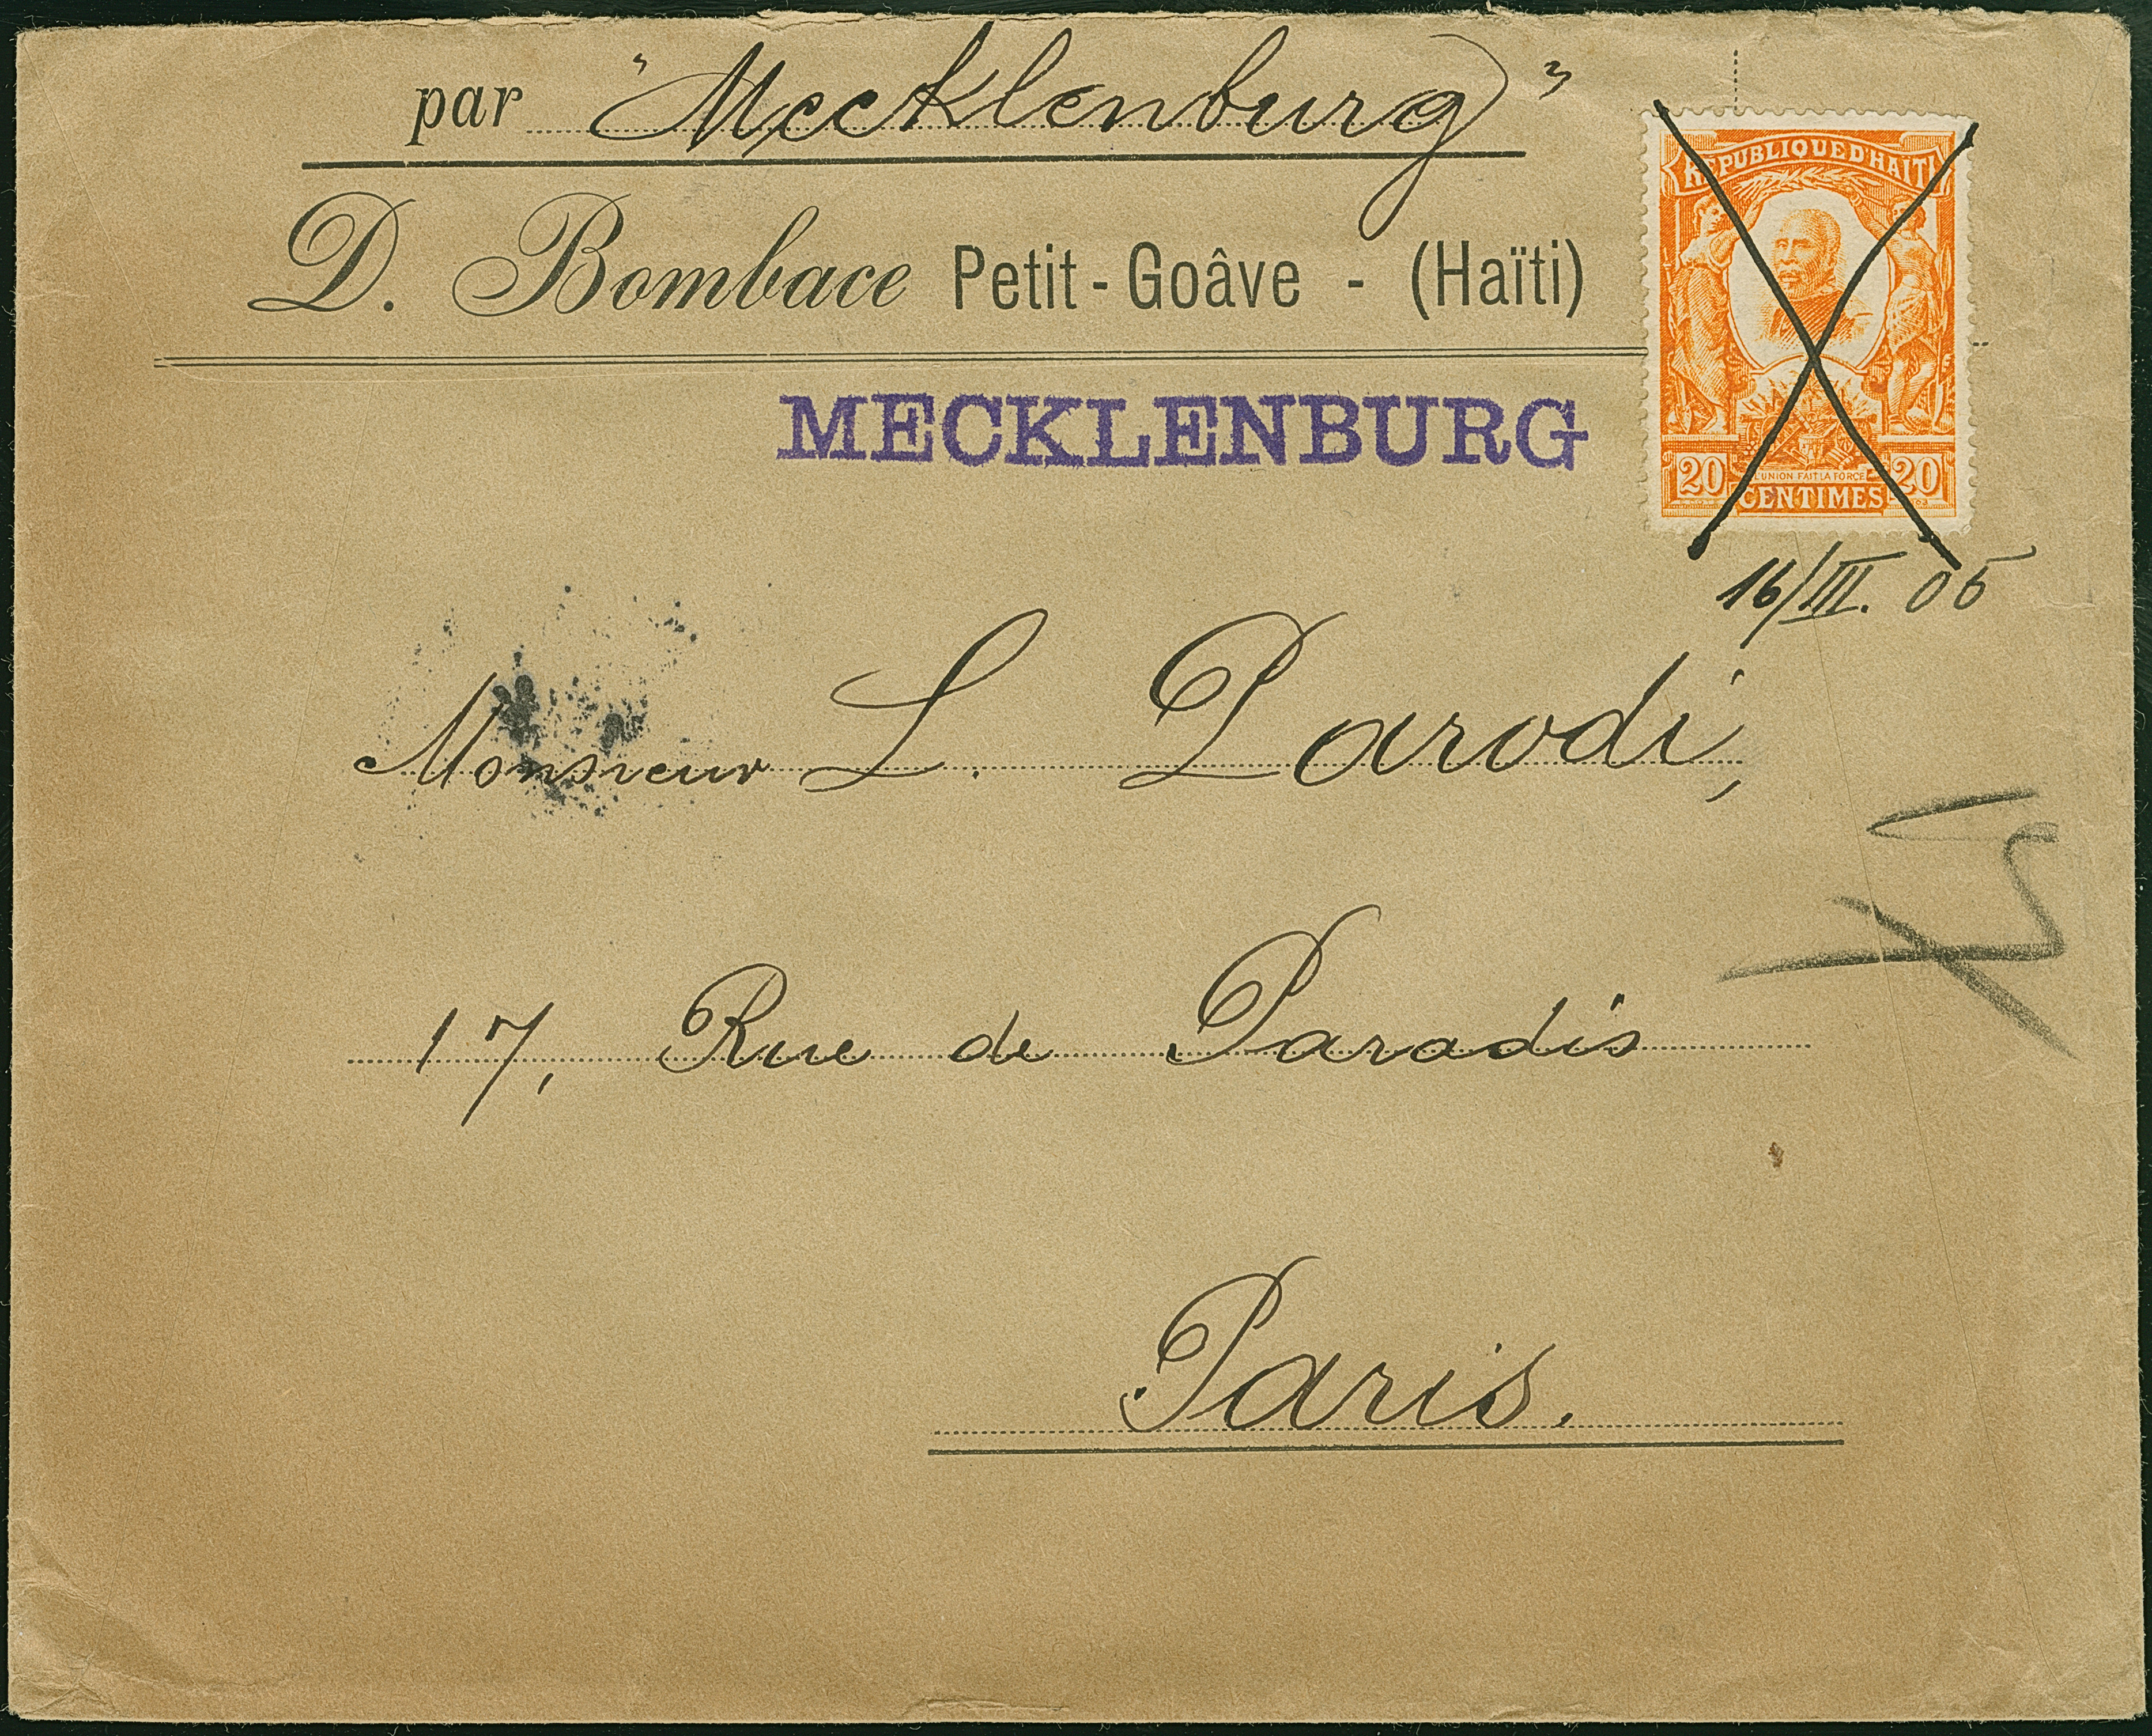 par "Mecklenburg"
D. Bombace Petit-Goâve - (Haïti)
REPUBLIQUE D'HAITI
20 L'UNION FAIT LA FORCE 20
CENTIMES
MECKLENBURG
16/III. 05
Monsieur L. Parodi,
17, Rue de Paradis
Paris.